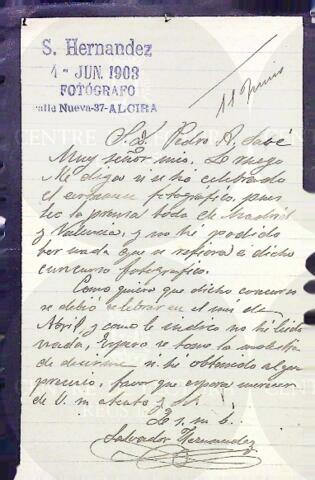 S. Hernandez
4 - JUN. 1903
FOTÓGRAFO
alle Nueva-37-ALCIRA
11 Junio
S. D. Pedro A.
Muy señor mio, Le ruego
Me diga si se há celebrado
el certamen fotográfico, pues
leo la prensa toda de Madrid
y Valencia, y no hé podido
ver nada que se refiera á dicho
concurso fotografico.
Como quiera que dicho concurso
se debió celebrar en el mes de
Abril, y como le indico no hé leido
nada, Espero se tome la molestia
de decirme si hé obtenido algun
premio, favor que espera merecer
de V. su atento y S. S.
Salvador Hernandez
CENTRE
REUS